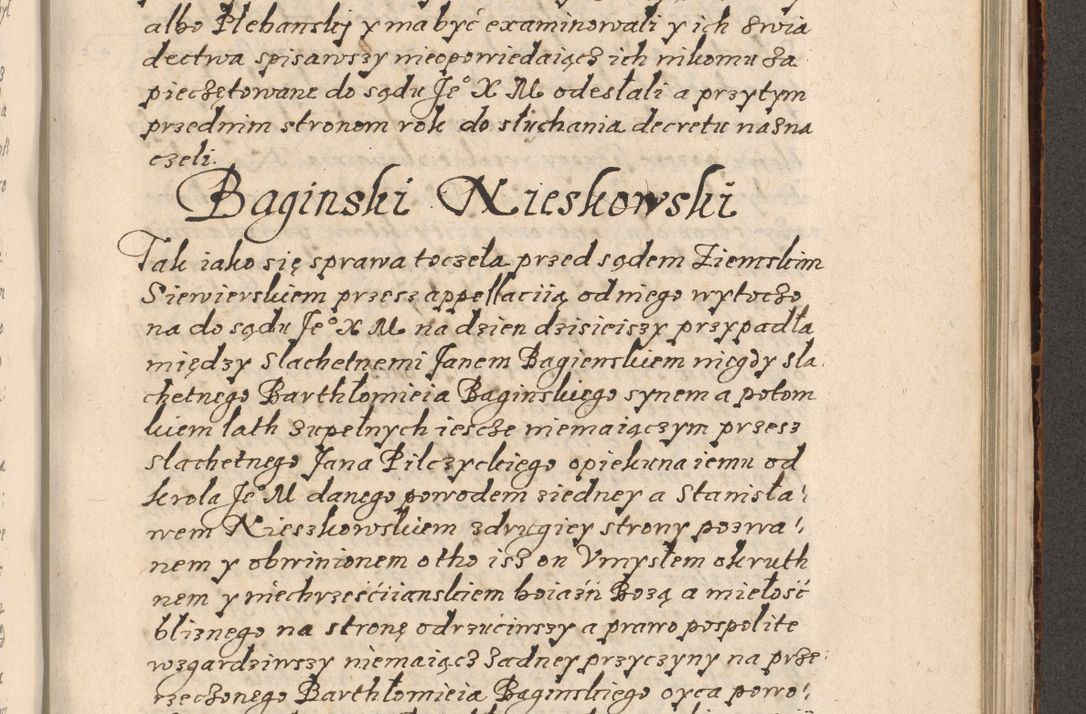 albo Plebanskj y ma być examinowali y ich swia
dectwa spisawszy nieopowiedaiącz ich nikomu za
pieczętowane do sądu Je° X M odesłali a przytym
przednim stronom rok do słuchania decretu nazna
czeli.
Baginski Nieskowski
Tak iako się sprawa toczeła przed sądem Ziemskim
Siewierskiem przesz appellaciią od niego wytoczo
na do sądu Je° X M na dzien dzisieiszy przypadła
między slachetnemi Janem Bagienskiem niegdy sla
chetnego Barthłomieia Baginskiego synem a potom
kiem lath zupełnych iescze niemaiączym przesz
slachetnego Jana Pilczyckiego opiekuna iemu od
krola Je° M danego powodem ziedney a Stanisła
wem Nieszkowskiem zdrugiey strony pozwa
nem y obwinionem otho isz on Vmysłem okruth
nem y niechrześćiianskiem boiaźń Bozą a miełość
bliznego na stronę odrzuciwszy a prawo pospolite
wzgardziwszy niemaiącz zadney przyczyny na prze
rzeczonego Barthłomieia Baginskiego oyca powo